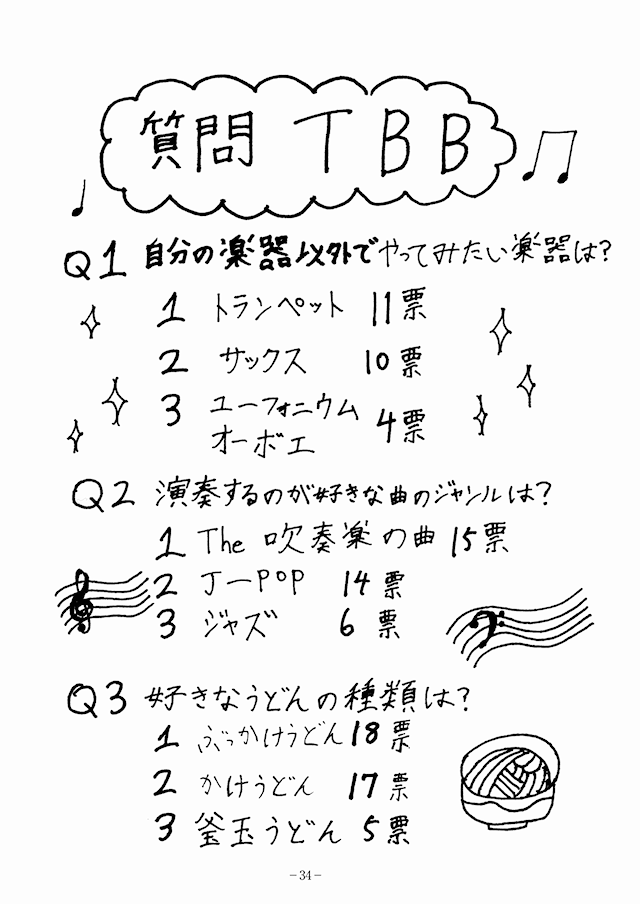 質問 TBB
Q1 自分の楽器以外でやってみたい楽器は?
1 トランペット 11票
2 サックス 10票
3 ユーフォニウム
オーボエ 4票
Q2 演奏するのが好きな曲のジャンルは?
1 The 吹奏楽の曲 15票
2 J-POP 14票
3 ジャズ 6票
Q3 好きなうどんの種類は?
1 ぶっかけうどん 18票
2 かけうどん 17票
3 釜玉うどん 5票
-34-